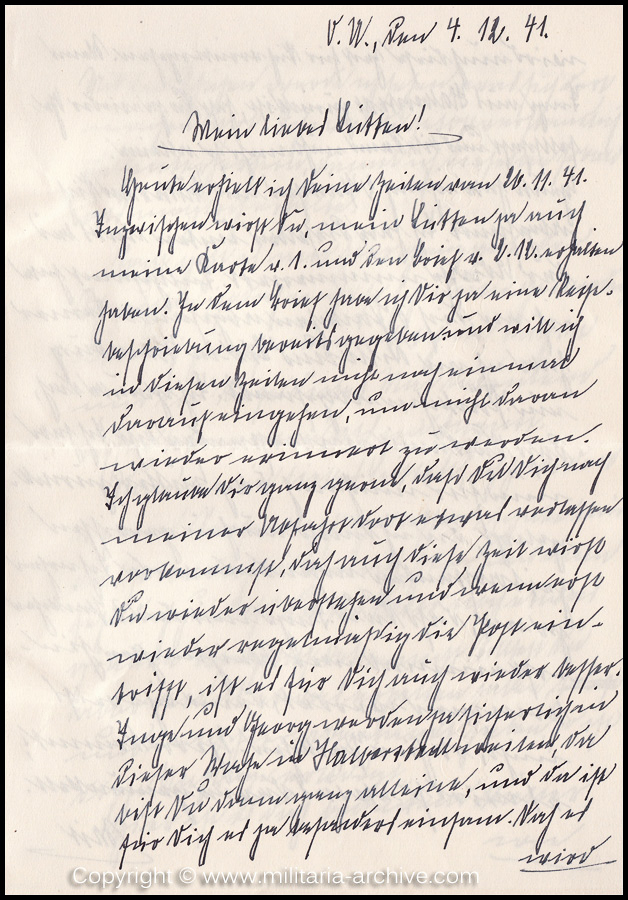 O. U., den 4. 12. 41.
Mein liebes Lütten!
Heute erhielt ich Deine Zeilen vom 20. 11. 41.
Inzwischen wirst Du, mein Lütten ja auch
meine Karte v. 1. und den Brief v. 2. 12. erhalten
haben. In dem Brief habe ich Dir ja eine Reise-
beschreibung bereits gegeben und will ich
in diesen Zeilen nicht noch einmal
darauf eingehen, um nicht daran
wieder erinnert zu werden.
Ich glaube Dir ganz gerne, daß Du Dich nach
meiner Abfahrt dort etwas verlassen
vorkommst, doch auch diese Zeit wirst
Du wieder überstehen und wenn erst
wieder regelmäßig die Post ein-
trifft, ist es für Dich auch wieder besser.
Inge und Georg werden ja sicherlich in
dieser Woche in Halberstadt weilen, da
bist Du dann ganz alleine, und da ist
für Dich es ja besonders einsam. Doch es
wird
Copyright © www.militaria-archive.com